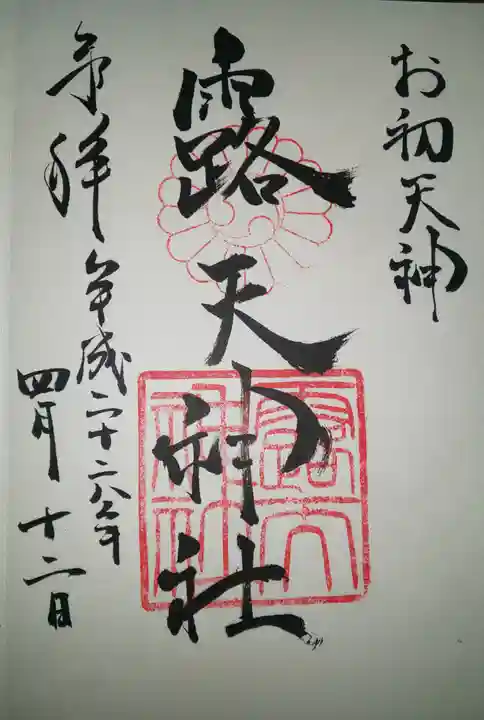 お初天神
露天神社
奉拝
平成二十六年
四月十二日
露天
神社